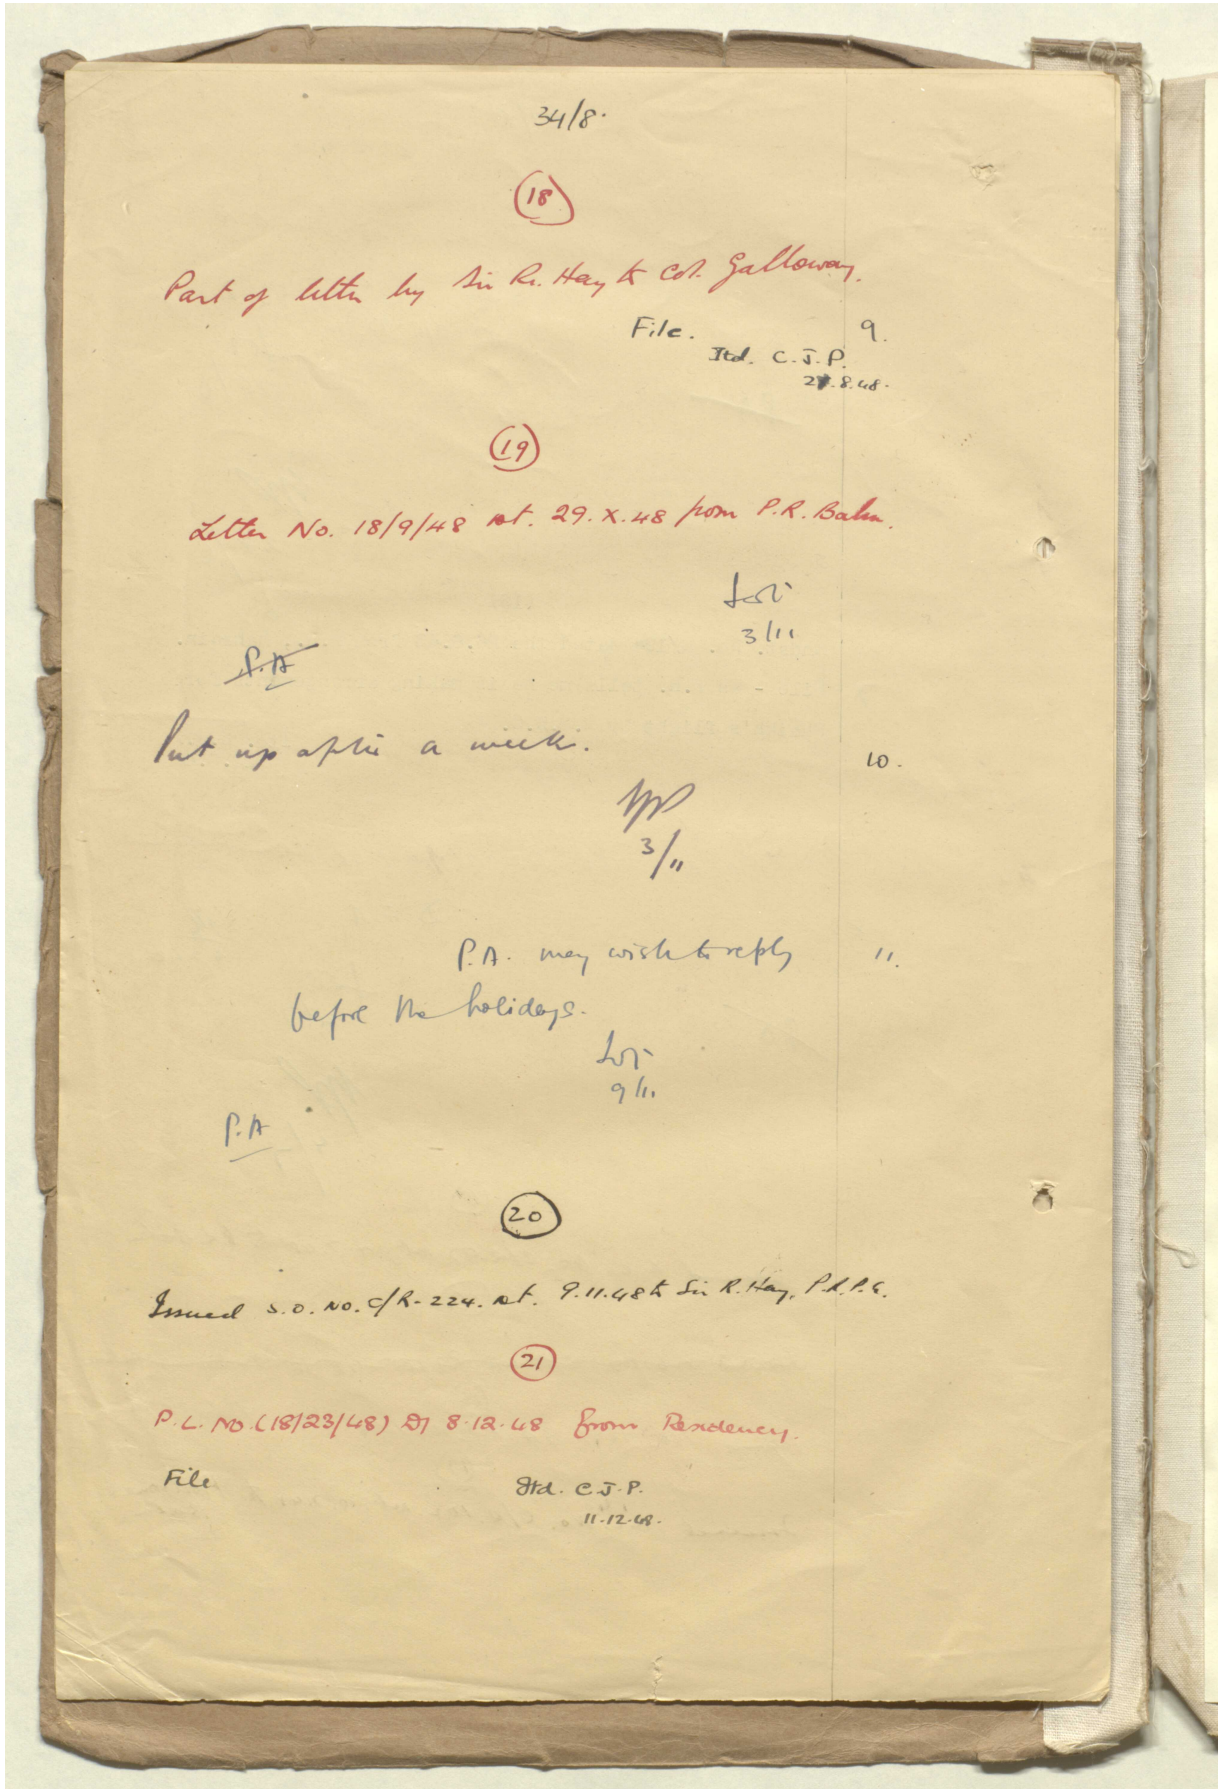 34/8.
18
Part of letter by Sir R. Hay to Col. Galloway.
File. 9.
Itd. C.J.P.
27.8.48.
19
Letter No. 18/9/48 dt. 29.X.48 from P.R. Bahn.
3/11
P.A
Put up after a week.
10.
3/11
P.A. may wish to reply 11.
before the holidays.
9/11.
P.A
20
Issued D.O. No. C/R-224. dt. 9.11.48 to Sir R. Hay, P.R.P.G.
21
P.L. NO. (18/23/48) D/ 8.12.48 from Residency.
File Itd. C.J.P.
11.12.48.